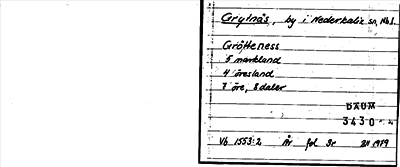 Grylnäs, by i Nederkalix sn, Nb l.
Gröffeness
5 markland
4 öresland
7 öre, 8 daler
DAUM
3430
Vb 1553:2 År fol 3r BH 1979